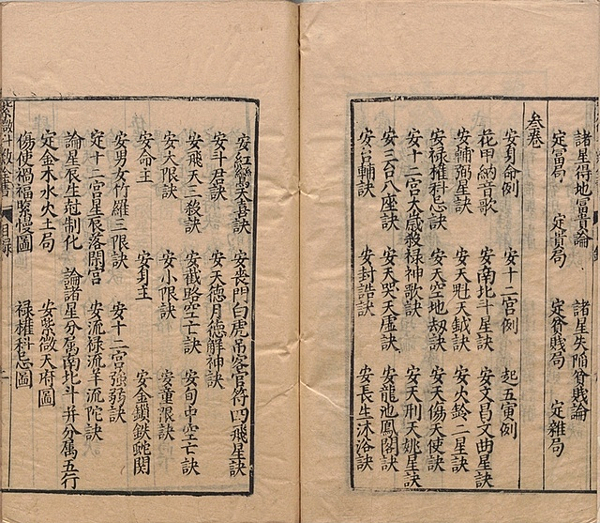 諸星得地富貴論　諸星失陷貧賤論
定富局　定貴局　定貧賤局　定雜局
叁卷
安身命例　安十二宮例　起五寅例
花甲納音歌　安南北斗星訣　安文昌文曲星訣
安輔弼星訣　安天魁天鉞訣　安火鈴二星訣
安禄權科忌訣　安天空地劫訣　安天傷天使訣
安十二宮太歲殺禄神歌訣　安天刑天姚星訣
安三台八座訣　安天哭天虛訣　安龍池鳳閣訣
安台輔訣　安封誥訣　安長生沐浴訣
安紅鸞天喜訣　安丧門白虎吊客官符四飛星訣
安斗君訣　安天德月德解神訣
安飛天三殺訣　安截路空亡訣　安旬中空亡訣
安大限訣　安小限訣　安童限訣
安命主　安身主　安金鎖鉄蛇関
安男女竹羅三限訣　安十二宮強弱訣
定十二宮星辰落閑宮　安流禄流羊流陀訣
論星辰生尅制化　論諸星分属南北斗并分属五行
定金木水火土局　安紫微天府圖
傷使禍福緊慢圖　禄權科忌圖
紫微斗數全書　目録